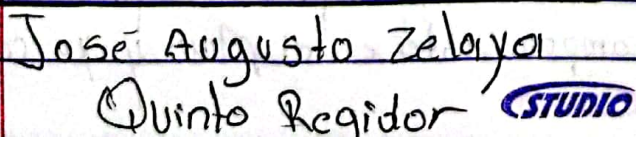 José Augusto Zelaya
Quinto Regidor
STUDIO